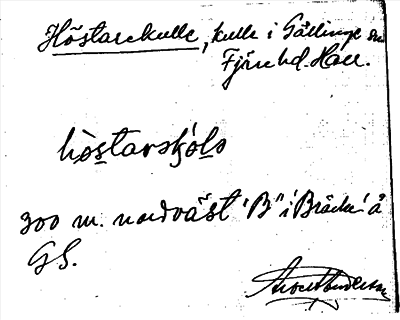 Höstarekulle, kulle i Gällinge sn
Fjäre hd. Hall.
hòstarskólo
300 m. nordväst "B" i Bräcke å
GS.